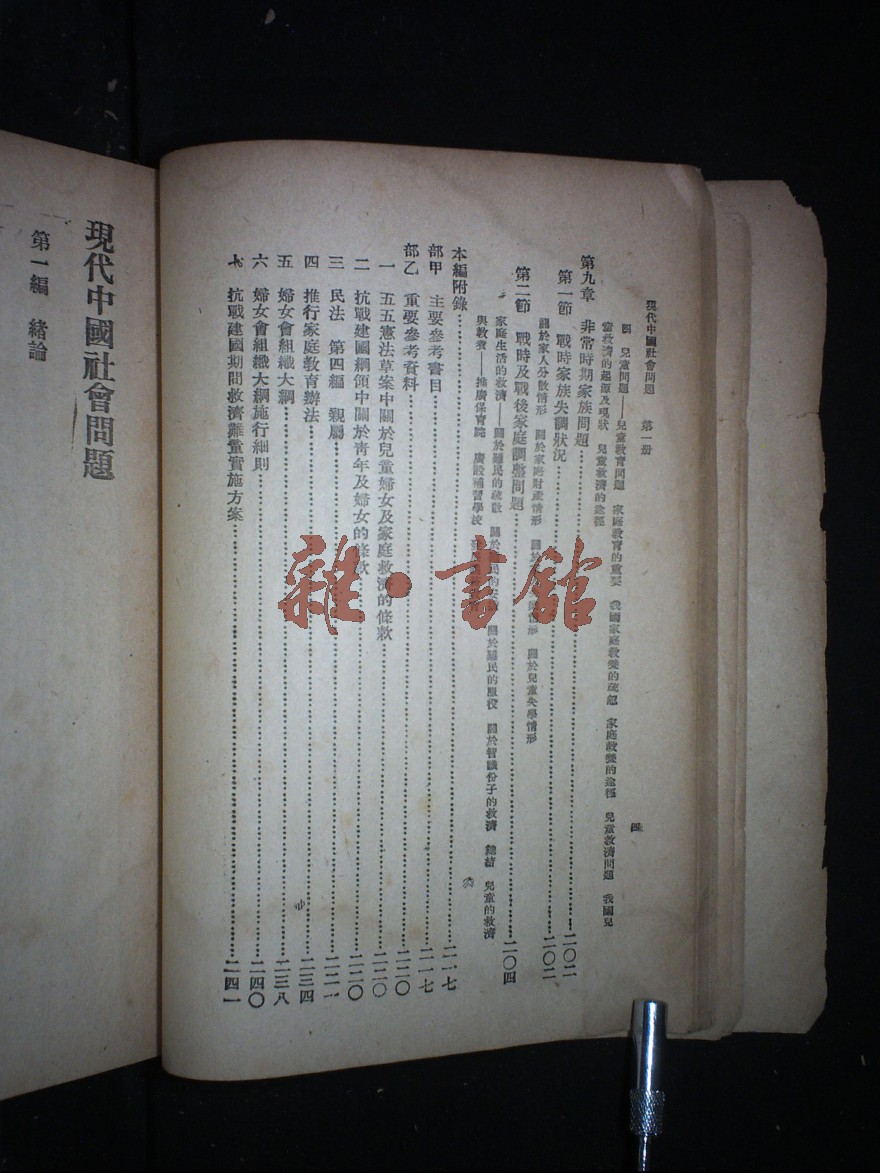 現代中國社會問題　第一册
四
四　兒童問題——兒童教育問題　家庭教育的重要　我國家庭教養的疏忽　家庭教養的途徑　兒童救濟問題　我國兒
童救濟的起源及現狀　兒童救濟的途徑
第九章　非常時期家族問題……二〇二
第一節　戰時家族失調狀況……二〇二
關於家人分散情形　關於家庭財產情形　關於 情形　關於兒童失學情形
第二節　戰時及戰後家庭調整問題……二〇四
家庭生活的救濟——關於難民的疏散　關於 民的 　關於難民的服役　關於智識份子的救濟　總結　兒童的救濟
與教養——推廣保育院　廣設補習學校
本編附錄……二一七
部甲　主要參考書目……二一七
部乙　重要參考資料……二二〇
一　五五憲法草案中關於兒童婦女及家庭救濟的條款……二二〇
二　抗戰建國綱領中關於青年及婦女的條款……二二〇
三　民法　第四編　親屬……二二一
四　推行家庭教育辦法……二三四
五　婦女會組織大綱……二三八
六　婦女會組織大綱施行細則……二四〇
七　抗戰建國期間救濟難童實施方案……二四一
現代中國社會問題
第一編　緒論
雜·書館